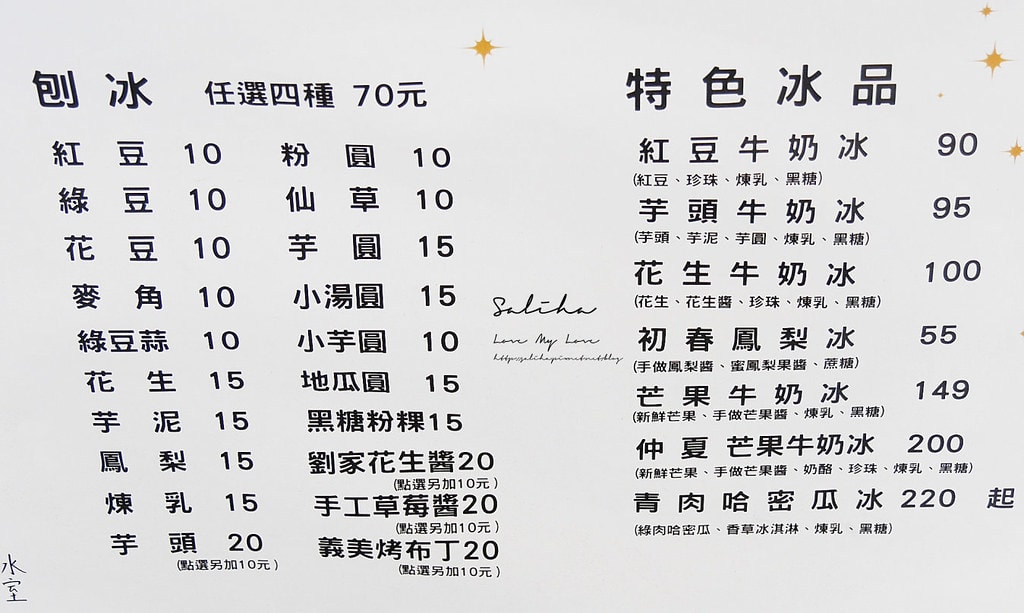 刨冰 任選四種 70元
紅豆 10
綠豆 10
花豆 10
麥角 10
綠豆蒜 10
花生 15
芋泥 15
鳳梨 15
煉乳 15
芋頭 20
(點選另加10元)
粉圓 10
仙草 10
芋圓 15
小湯圓 15
小芋圓 10
地瓜圓 15
黑糖粉粿15
劉家花生醬20
(點選另加10元)
手工草莓醬20
(點選另加10元)
義美烤布丁20
(點選另加10元)
特色冰品
紅豆牛奶冰 90
(紅豆、珍珠、煉乳、黑糖)
芋頭牛奶冰 95
(芋頭、芋泥、芋圓、煉乳、黑糖)
花生牛奶冰 100
(花生、花生醬、珍珠、煉乳、黑糖)
初春鳳梨冰 55
(手做鳳梨醬、蜜鳳梨果醬、蔗糖)
芒果牛奶冰 149
(新鮮芒果、手做芒果醬、煉乳、黑糖)
仲夏芒果牛奶冰 200
(新鮮芒果、手做芒果醬、奶酪、珍珠、煉乳、黑糖)
青肉哈密瓜冰 220 起
(綠肉哈密瓜、香草冰淇淋、煉乳、黑糖)
Saliha
Love My Love
水室